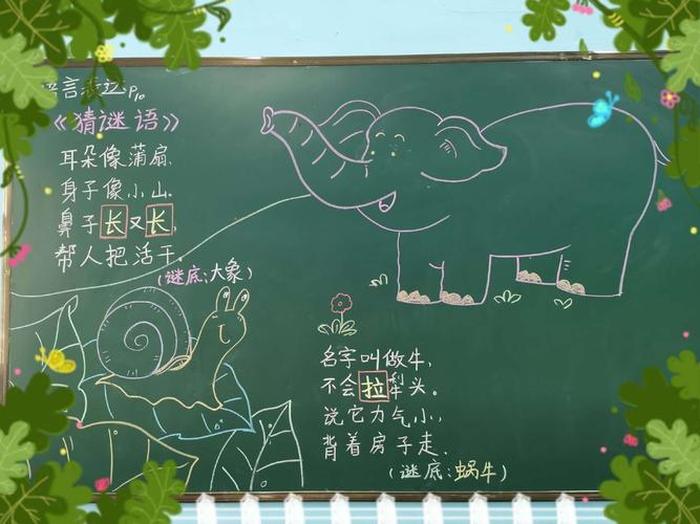 语言表达P10
《猜谜语》
耳朵像蒲扇,
身子像小山。
鼻子长又长,
帮人把活干。
(谜底:大象)
名字叫做牛,
不会拉犁头。
说它力气小,
背着房子走。
(谜底:蜗牛)